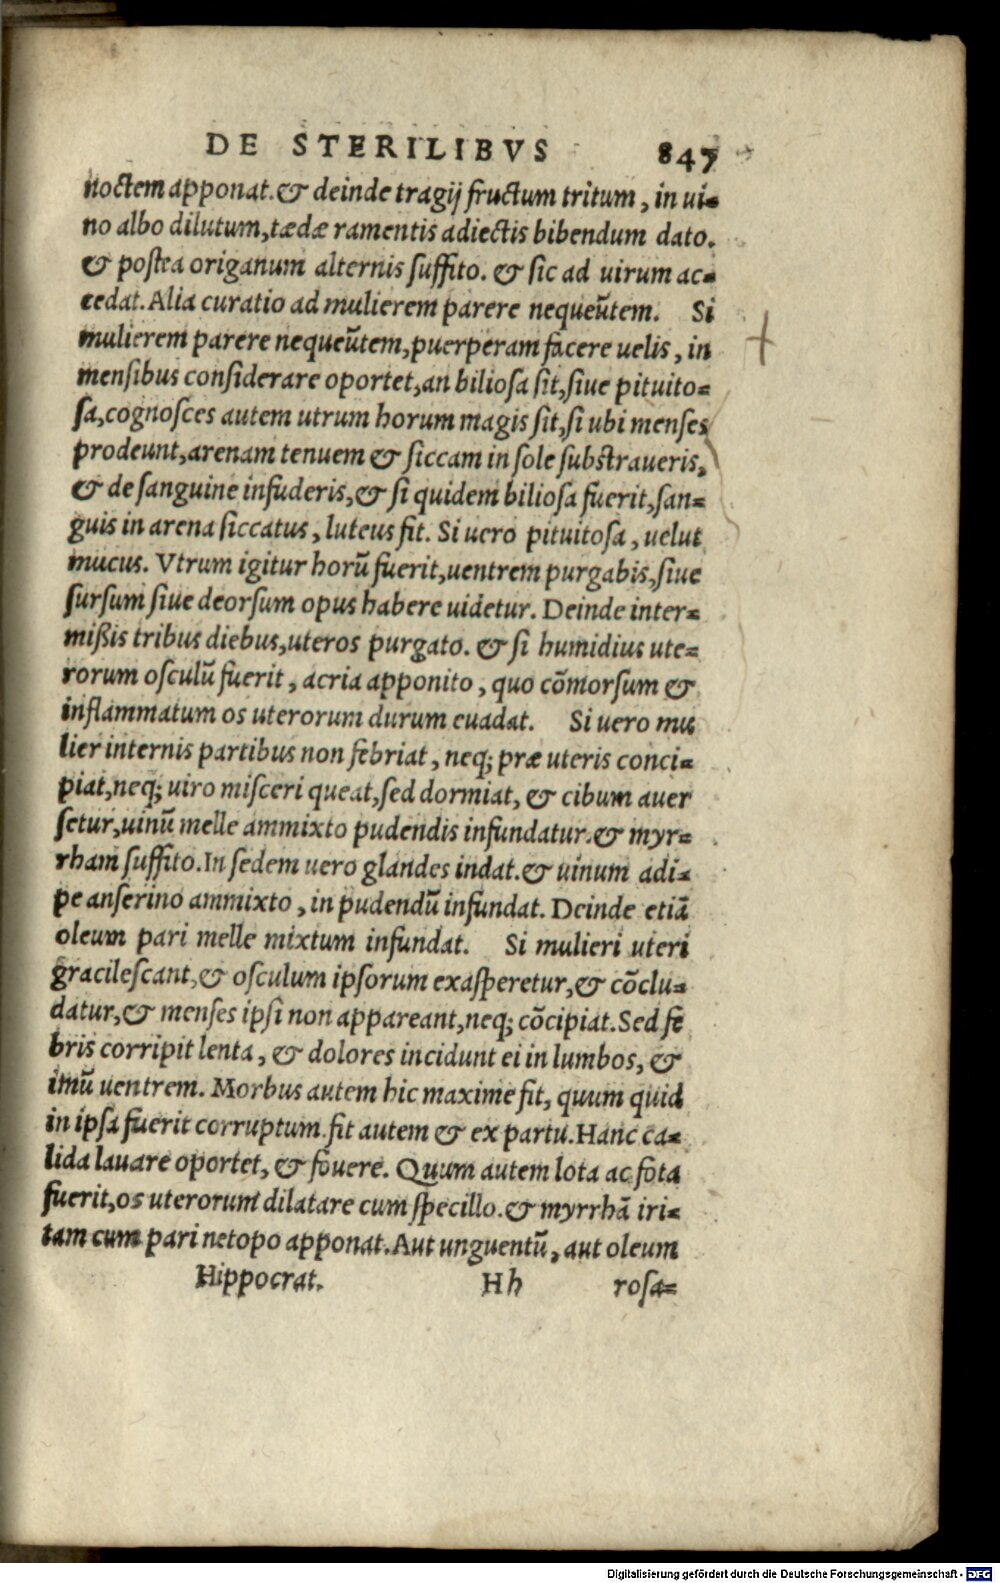 DE STERILIBVS 847
noctem apponat. & deinde tragij fructum tritum, in ui-
no albo dilutum, tædæ ramentis adiectis bibendum dato.
& postea origanum alternis suffito. & sic ad uirum ac-
cedat. Alia curatio ad mulierem parere nequeūtem. Si
mulierem parere nequeūtem, puerperam facere uelis, in
mensibus considerare oportet, an biliosa sit, siue pituito-
sa, cognosces autem utrum horum magis sit, si ubi menses
prodeunt, arenam tenuem & siccam in sole substraueris,
& de sanguine infuderis, & si quidem biliosa fuerit, san-
guis in arena siccatus, luteus fit. Si uero pituitosa, uelut
mucus. Vtrum igitur horū fuerit, uentrem purgabis, siue
sursum siue deorsum opus habere uidetur. Deinde inter-
mißis tribus diebus, uteros purgato. & si humidius ute-
rorum osculū fuerit, acria apponito, quo cōmorsum &
inflammatum os uterorum durum euadat. Si uero mu
lier internis partibus non febriat, neq; præ uteris conci-
piat, neq; uiro misceri queat, sed dormiat, & cibum auer
setur, uinū melle ammixto pudendis infundatur. & myr-
rham suffito. In sedem uero glandes indat. & uinum adi-
pe anserino ammixto, in pudendū infundat. Deinde etiā
oleum pari melle mixtum infundat. Si mulieri uteri
gracilescant, & osculum ipsorum exasperetur, & cōclu-
datur, & menses ipsi non appareant, neq; cōcipiat. Sed fe
bris corripit lenta, & dolores incidunt ei in lumbos, &
imū uentrem. Morbus autem hic maxime fit, quum quid
in ipsa fuerit corruptum. fit autem & ex partu. Hanc ca-
lida lauare oportet, & fouere. Quum autem lota ac fota
fuerit, os uterorum dilatare cum specillo. & myrrhā iri-
tam cum pari netopo apponat. Aut unguentū, aut oleum
Hippocrat. Hh rosa-
Digitalisierung gefördert durch die Deutsche Forschungsgemeinschaft - DFG